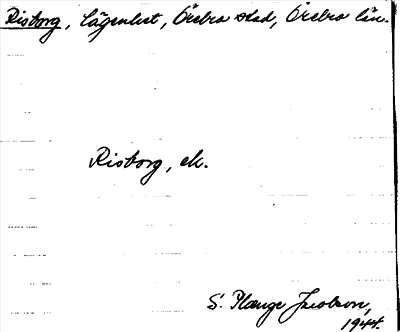 Risborg, Lägenhet, Örebro stad, Örebro län.
Risborg, ek.
S. Plange Jacobson,
1944.